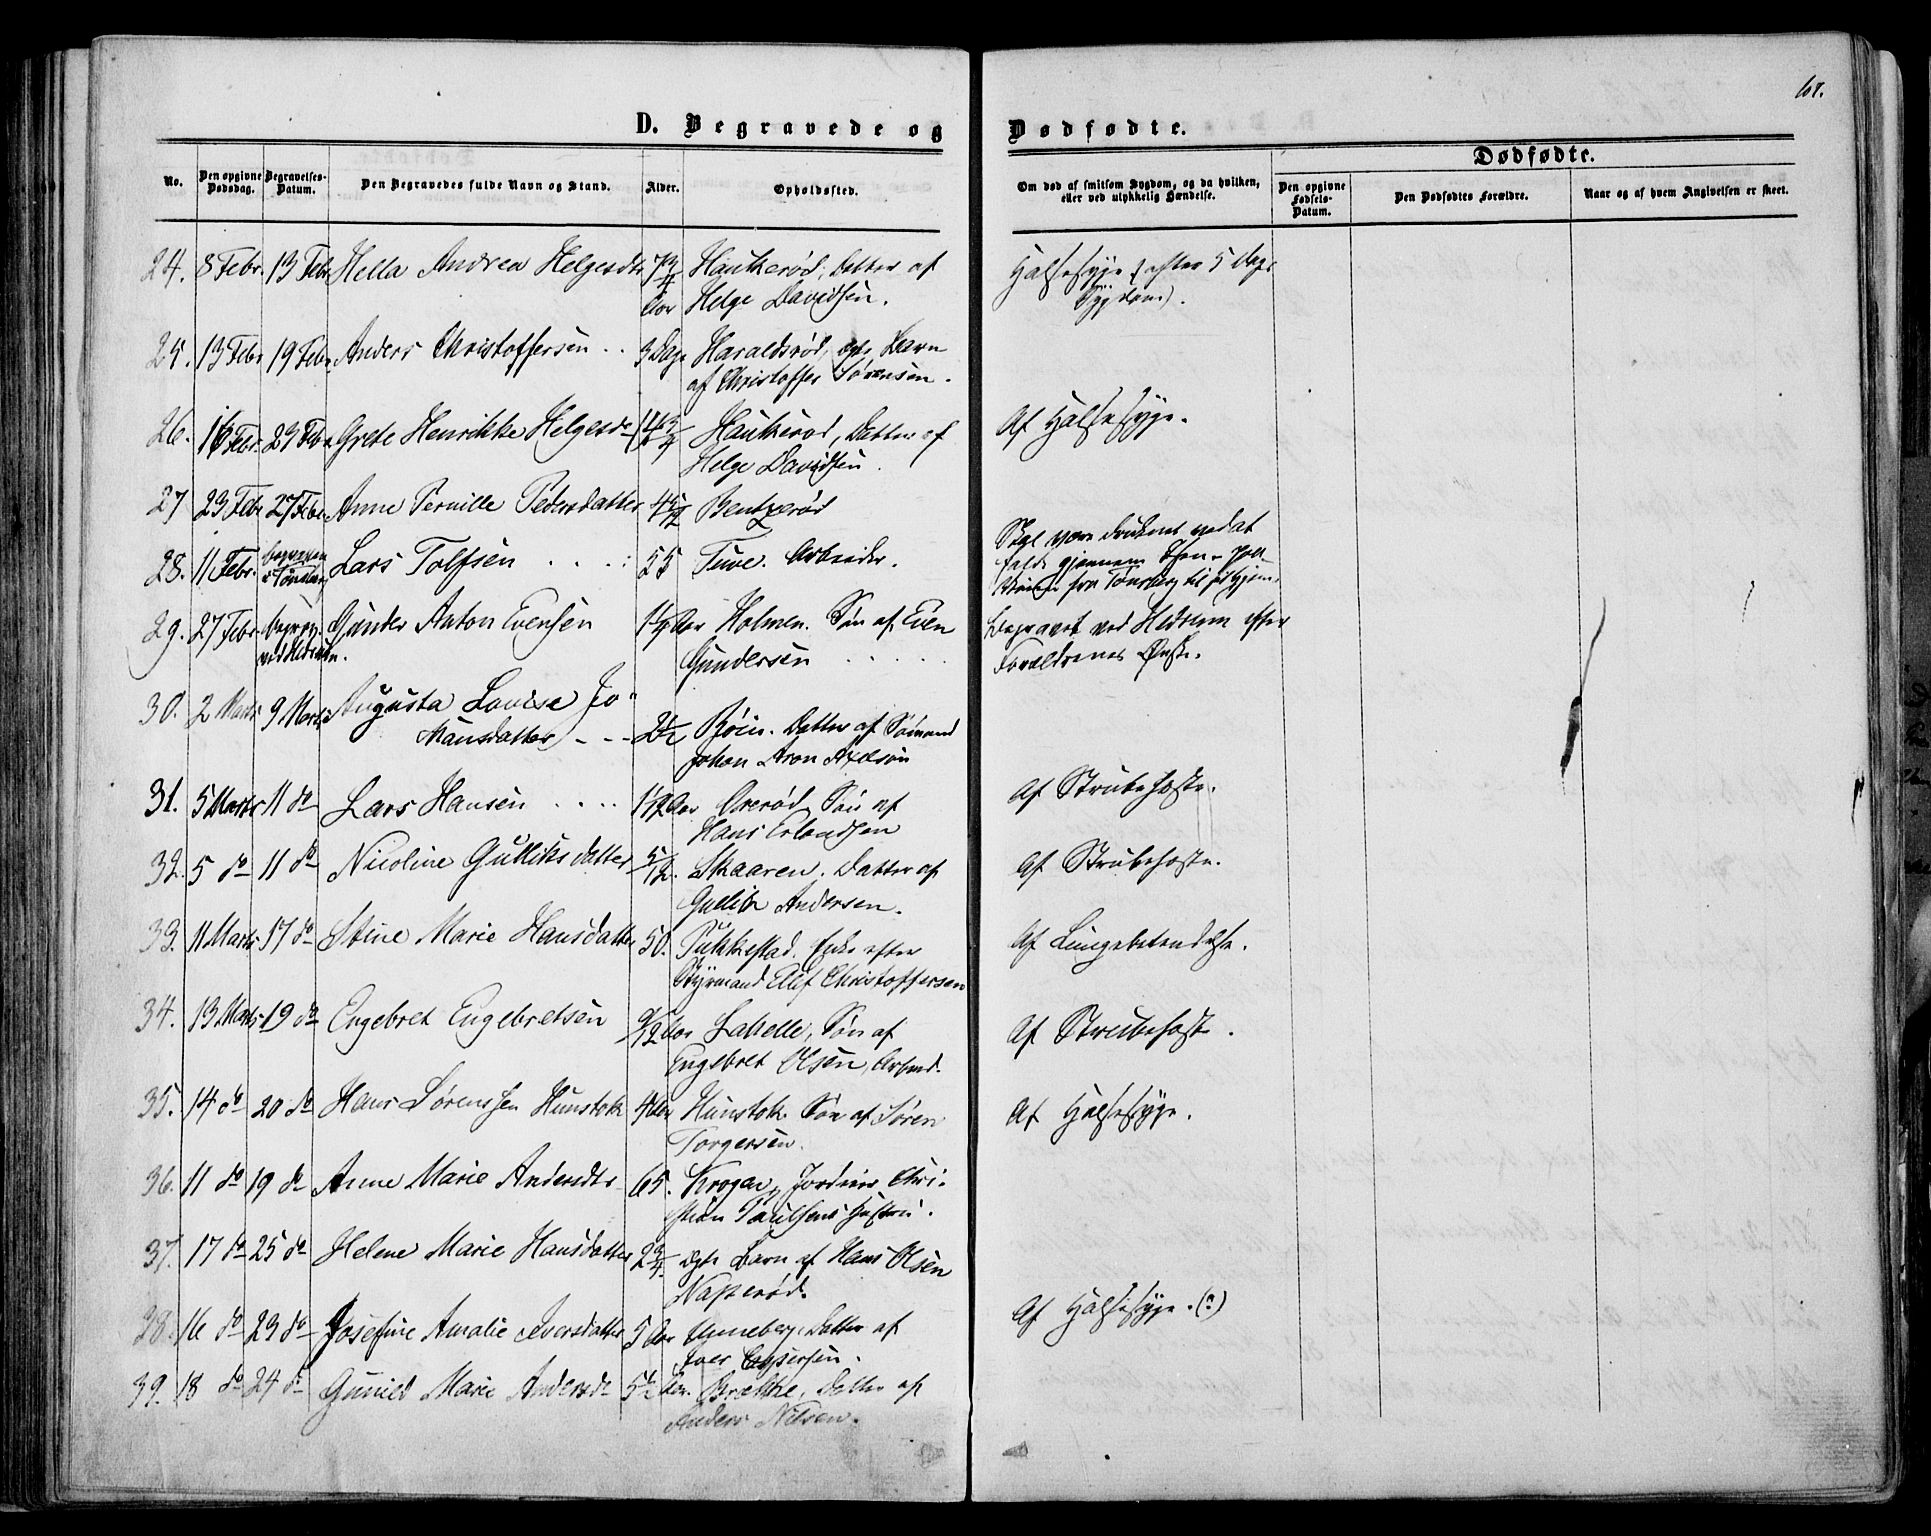 67.
D. Begravede og Dødfødte.
Dødfødte.
No.
Den opgivne Dødsdag.
Begravelses-Datum.
Den Begravedes fulde Navn og Stand.
Alder.
Opholdssted.
Om død af smitsom Sygdom, og da hvilken, eller ved ulykkelig Hændelse.
Den opgivne Fødsels-Datum.
Den Dødfødtes Forældre.
Naar og af hvem Angivelsen er skeet.
24. 8 Febr. 13 Febr Hella Andrea Helgesdtr 7 3/4 Haukerød, Datter af Halssyge (efter 5 Dags
Aar Helge Davidsen. Sygdom).
25. 13 Febr 19 Febr. Anders Christoffersen . . 3 Dage Haraldsrød, ægte Barn
af Christoffer Sørensen.
26. 16 Febr. 23 Febr Grete Henrikke Helgesd 3/4 Haukerød, Datter af Af Halssyge.
Helge Davidsen.
27 23 Febr 27 Febr. Anne Pernille Pedersdatter Bentzerød
28. 11 Febr. begraven Lars Tolfsen . . . : 25 Tuve. Arbeider. Sagt være druknet ved at
i Tønsberg falde gjennem Isen paa
Veien fra Tønsberg til sit Hjem.
29. 27 Febr. begrav. Gunder Anton Evensen 1 1/2 Aar Holmen. Søn af Even Begravet ved Hedrum efter
ved Hedrum. Gundersen . . . . . Forældrenes Ønske.
30. 2 Marts 9 Marts Augusta Lovise Jo-
hansdatter - - - 2 1/2 Bøen. Datter af Sømand
Johan Aron Axelsøn
31. 5 Marts 11 do Lars Hansen . . . . 1 1/2 Aar Orerød Søn af Af Strubehoste.
Hans Erlandsen
32. 5 do 11 do Nicoline Gulliksdatter 5/12. Skaaren. Datter af Af Strubehoste.
Gullik Andersen.
33. 11 Marts 17 do Stine Marie Hansdatter 50. Pukkestad. Enke efter Af Lungebetændelse.
Styrmand Olaf Christoffersen
34. 13 Marts 19 do Engebret Engebretsen 9/12 Aar Lahelle, Søn af Af Strubehoste.
Engebret Olsen, Arbeid.
35. 14 do 20 do Hans Sørenssen Hunstok 4 Aar Hunstok. Søn af Søren Af Halssyge.
Torgersen.
36. 11 do 19 do Anne Marie Andersdtr 65. Krogen, Jordeier Chri-
stian Paulsens Hustru.
37. 17 do 25 do Helene Marie Hansdatter 2 3/4. ægte Barn af Hans Olsen
Napperød.
38. 16 do 23 do Josefine Amalie Iversdatter 5 Aar Unneberg, Datter af Af Halssyge. (?)
Iver Caspersen.
39. 18 do 24 do Gunild Marie Andersd 5 1/2 Aar. Brække, Datter af
Anders Nilsen.